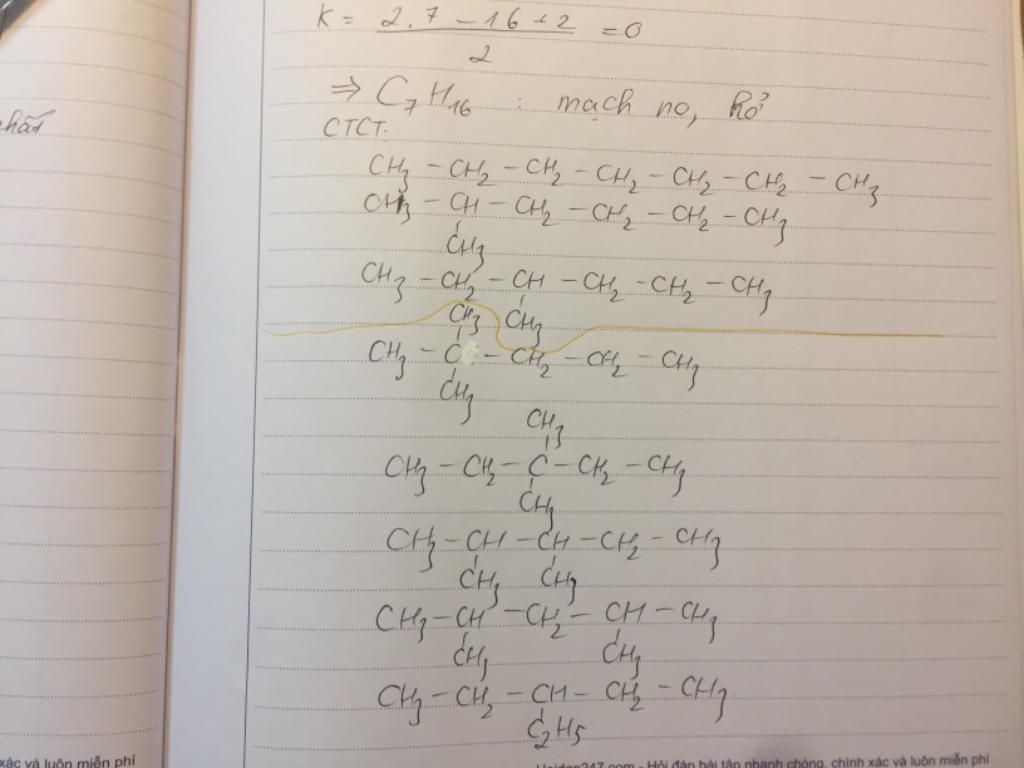 K = 2.7 - 16 + 2 / 2 = 0
⇒ C7H16 : mạch no, hở
CTCT:
CH3 - CH2 - CH2 - CH2 - CH2 - CH2 - CH3
CH3 - CH - CH2 - CH2 - CH2 - CH3
CH3
CH3 - CH2 - CH - CH2 - CH2 - CH3
CH3 CH3
CH3 - C - CH2 - CH2 - CH3
CH3
CH3
CH3 - CH2 - C - CH2 - CH3
CH3
CH3 - CH - CH - CH2 - CH3
CH3 CH3
CH3 - CH - CH2 - CH - CH3
CH3 CH3
CH3 - CH2 - CH - CH2 - CH3
C2H5
xác và luôn miễn phí
Hoidap247.com - Hỏi đáp bài tập nhanh chóng, chính xác và luôn miễn phí